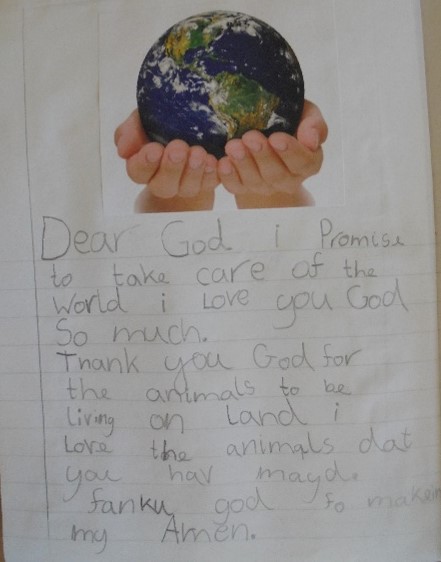 Dear God i Promise
to take care of the
World i Love you God
So much.
Thank you God for
the animals to be
living on Land i
Love the animals dat
you hav mayd.
fanku god fo makein
my Amen.